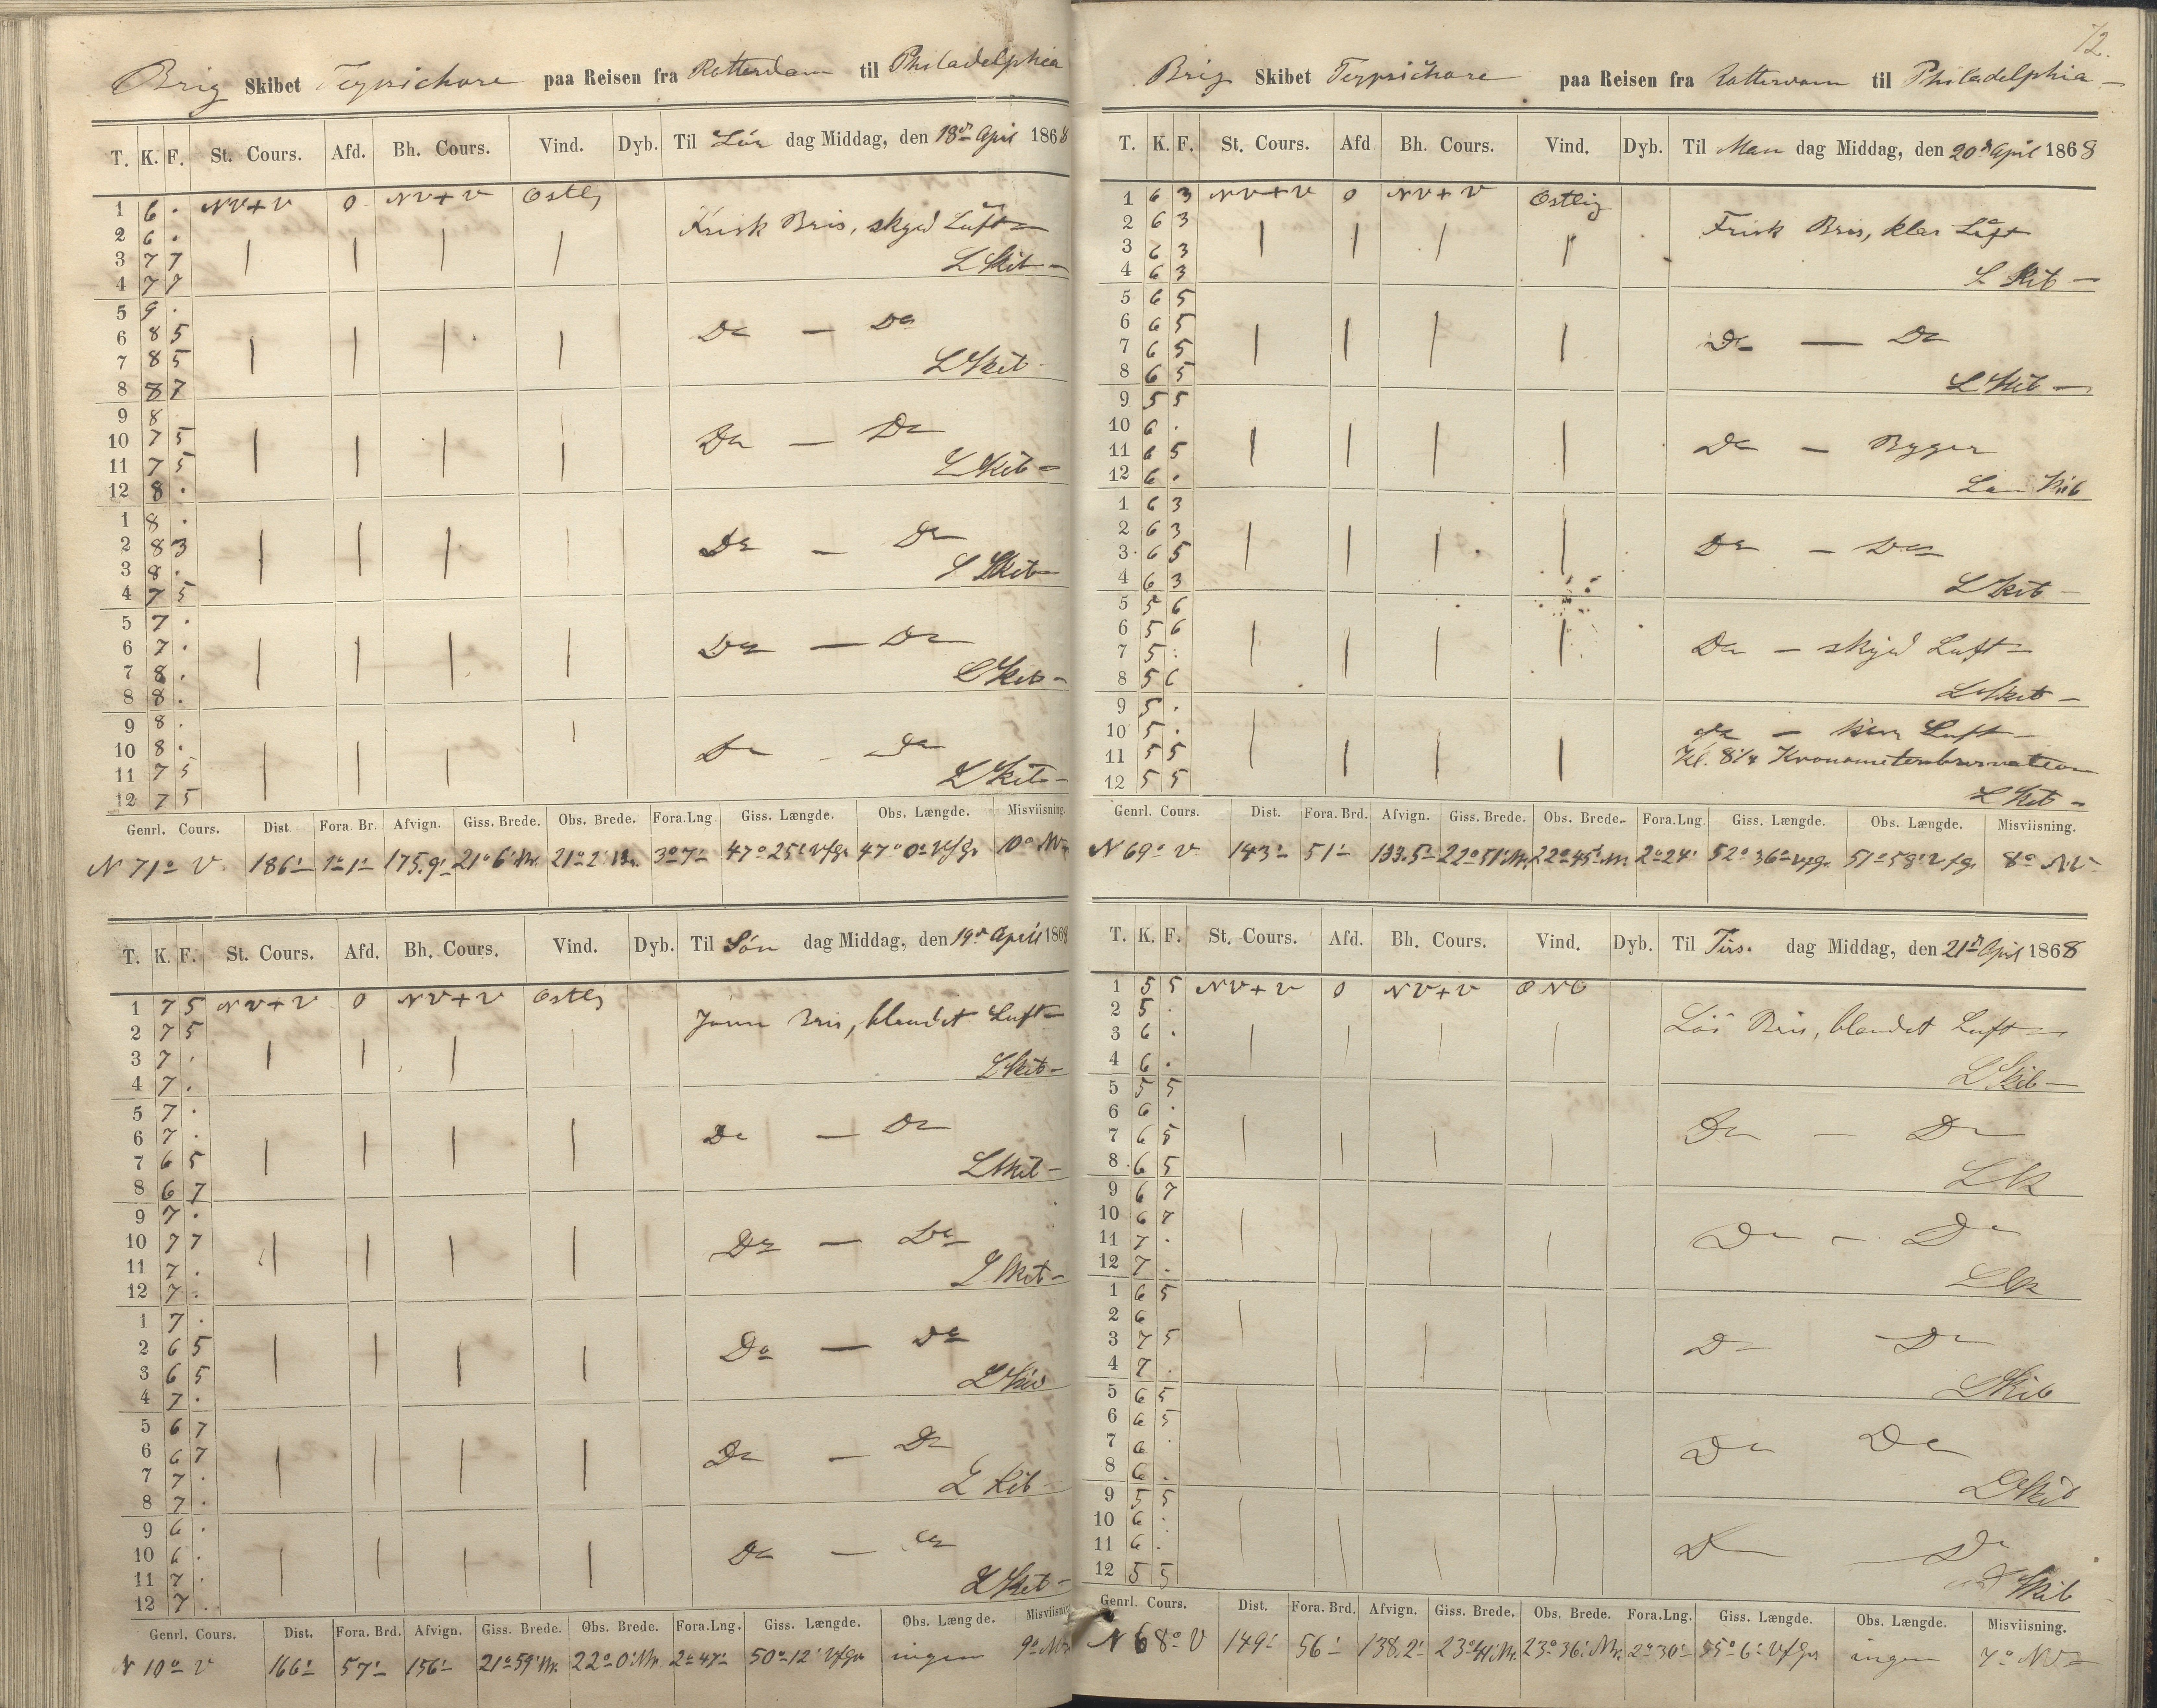 Brig Skibet Terpsichore paa Reisen fra Rotterdam til Philadelphia
T. K. F. St. Cours. Afd. Bh. Cours. Vind. Dyb. Til Lör dag Middag, den 18de April 1868
1 6 . NV+V 0 NV+V Ostlig
2 6 . Frisk Bris, skyed Luft
3 7 7 L Skib
4 7 7
5 9 .
6 8 5 Do — Do
7 8 5 L Skib
8 8 7
9 8
10 7 5 Do — Do
11 7 5 L Skib
12 8 .
1 8 .
2 8 3 Do — Do
3 8 . L Skib
4 7 5
5 7 .
6 7 . Do — Do
7 8 . L Skib
8 8 .
9 8 .
10 8 . Do — Do
11 7 5 L Skib
12 7 5
Genrl. Cours. Dist. Fora. Br. Afvign. Giss. Brede. Obs. Brede. Fora.Lng. Giss. Længde. Obs. Længde. Misviisning.
N 71° V 186' 1° 1' 175.9' 21° 6' Nr. 21° 2' Nr. 3° 7' 47° 25' V f Gr. 47° 0' V f Gr. 10° NV
T. K. F. St. Cours. Afd. Bh. Cours. Vind. Dyb. Til Sön dag Middag, den 19de April 1868
1 7 5 NV+V 0 NV+V Ostlig
2 7 5 Jevn Bris, blandet Luft
3 7 . L Skib
4 7 .
5 7 .
6 7 . Do — Do
7 6 5 L Skib
8 6 7
9 7 .
10 7 7 Do — Do
11 7 . L Skib
12 7 .
1 7 .
2 6 5 Do — Do
3 6 5 L Skib
4 7 .
5 6 7
6 6 7 Do — Do
7 7 . L Skib
8 7 .
9 6 .
10 6 . Do — Do
11 7 . L Skib
12 7 .
Genrl. Cours. Dist. Fora. Brd. Afvign. Giss. Brede. Obs. Brede. Fora.Lng. Giss. Længde. Obs. Længde. Misviisning
N 10° V 166' 57' 156' 21° 59' Nr. 22° 0' Nr. 2° 47' 50° 12' V f Gr. ingen 9° NV
72.
Brig Skibet Terpsichore paa Reisen fra Rotterdam til Philadelphia
T. K. F. St. Cours. Afd Bh. Cours. Vind. Dyb. Til Man dag Middag, den 20de April 1868
1 6 3 NV+V 0 NV+V Ostlig
2 6 3 Frisk Bris, klar Luft
3 6 3 L Skib
4 6 3
5 6 5
6 6 5 Do — Do
7 6 5 L Skib
8 6 5
9 5 5
10 6 . Do — Byger
11 6 5
12 6 . Skib
1 6 3
2 6 3 Do — Do
3 6 5 L Skib
4 6 3
5 5 6
6 5 6 Do — skyed Luft
7 5 . L Skib
8 5 6
9 5 .
10 5 . do — klar Luft
11 5 5 Kl. 8 1/4 Kronometerobservation
12 5 5 L Skib
Genrl. Cours. Dist. Fora. Brd. Afvign. Giss. Brede. Obs. Brede. Fora.Lng. Giss. Længde. Obs. Længde. Misviisning.
N 69° V 143' 51' 133.5' 22° 51' Nr. 22° 45' Nr. 2° 24' 52° 36' V f Gr. 51° 58' V f Gr. 8° NV
T. K. F. St. Cours. Afd. Bh. Cours. Vind. Dyb. Til Tirs. dag Middag, den 21de April 1868
1 5 5 NV+V 0 NV+V ONO
2 5 . Lös Bris, blandet Luft
3 6 .
4 6 . L Skib
5 5 5
6 6 . Do — Do
7 6 5
8 6 5 L Sk
9 6 7
10 6 7 Do — Do
11 7 .
12 7 . L Sk
1 6 5
2 6 Do — Do
3 7 5
4 7 . L Skib
5 6 5
6 6 5 Do Do
7 6 .
8 6 . L Skib
9 5 5
10 6 . Do Do
11 6 .
12 5 5 Skib
Genrl. Cours. Dist. Fora. Brd. Afvign. Giss. Brede. Obs. Brede. Fora.Lng. Giss. Længde. Obs. Længde. Misviisning.
N 68° V 149' 56' 138.2' 23° 41' Nr. 23° 36' Nr. 2° 30' 55° 6' V f Gr. ingen 7° NV